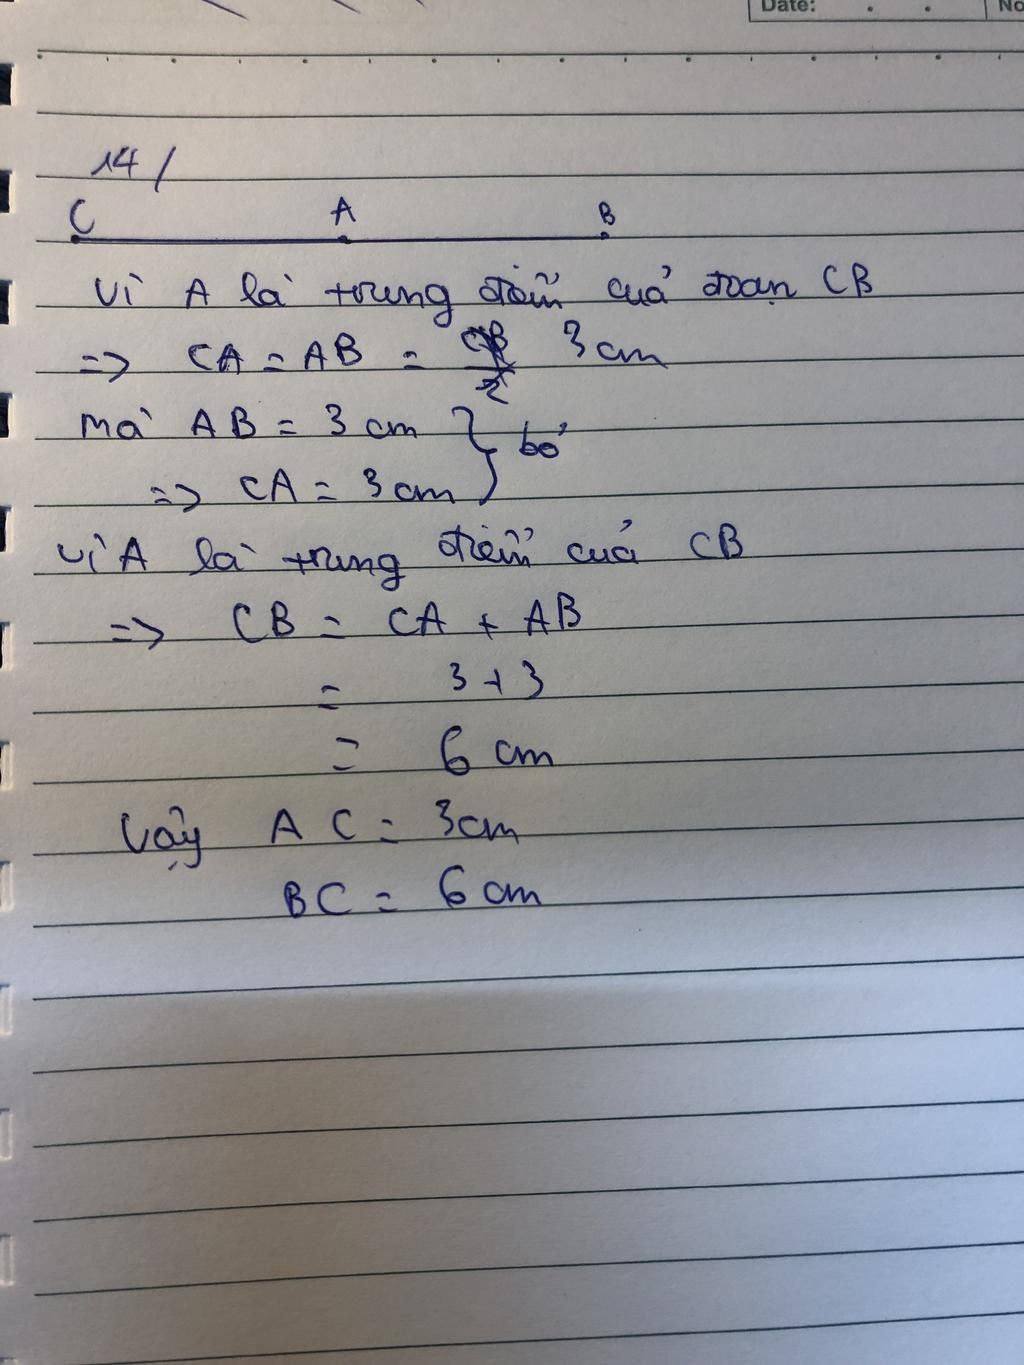 Date:
No
14/
C A B
Vì A là trung điểm của đoạn CB
=> CA = AB = 3 cm
mà AB = 3 cm } bỏ
=> CA = 3 cm
Vì A là trung điểm của CB
=> CB = CA + AB
= 3 + 3
= 6 cm
Vậy AC = 3cm
BC = 6 cm